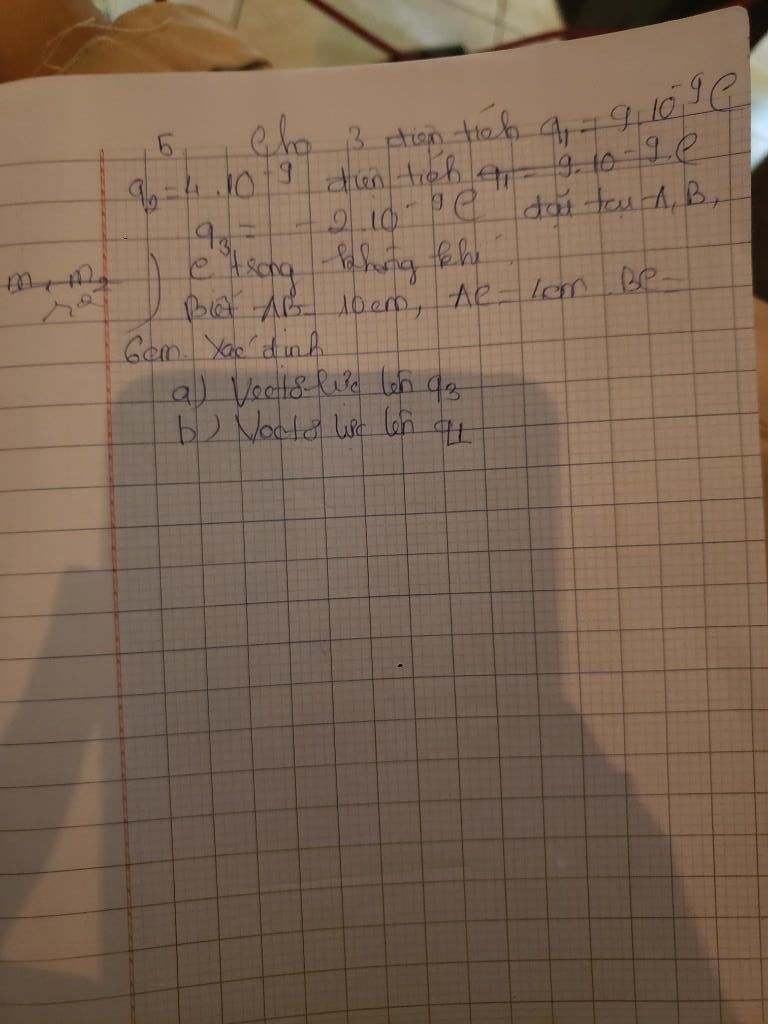 5 Cho 3 điện tích q₁ = 9.10⁻⁹ C
q₂ = 4.10⁻⁹ điện tích q₁ = 9.10⁻⁹.C
q₃ = - 2.10⁻⁹ C đặt tại A, B,
C trong không khí
m₁ m₂
r²
Biết AB = 10cm, AC = 4cm BC =
6cm. Xác định
a) Vectơ lực lên q₃
b) Vectơ lực lên q₁